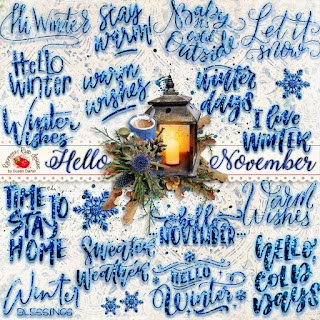 Hi Winter
Stay
warm!
Baby
it's
cold
Outside
Let it
snow
Hello
WINTER
warm
wishes
winter
days
Winter
Wishes
I love
WINTER
by Susan Darter
Hello November
TIME TO
STAY
HOME
hello
NOVEMBER...
Warm
Wishes
Sweater
Weather
HELLO
Winter
hello,
COLD
days
Winter
BLESSINGS